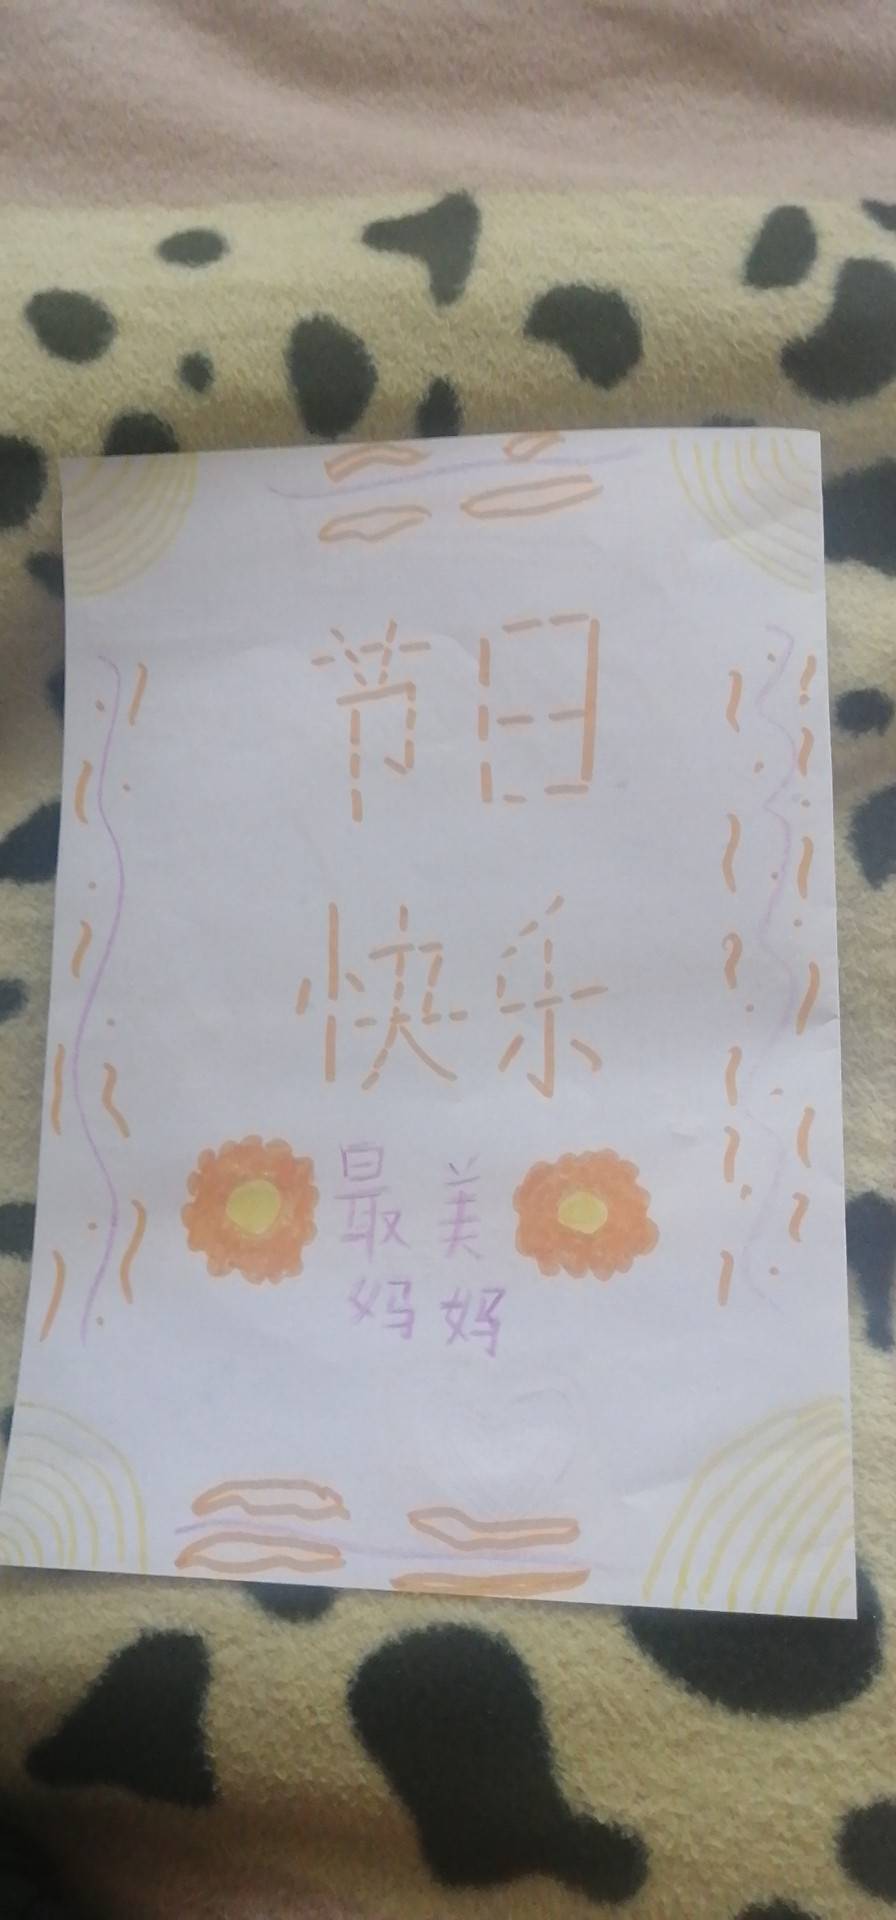 节日
快乐
最美
妈妈